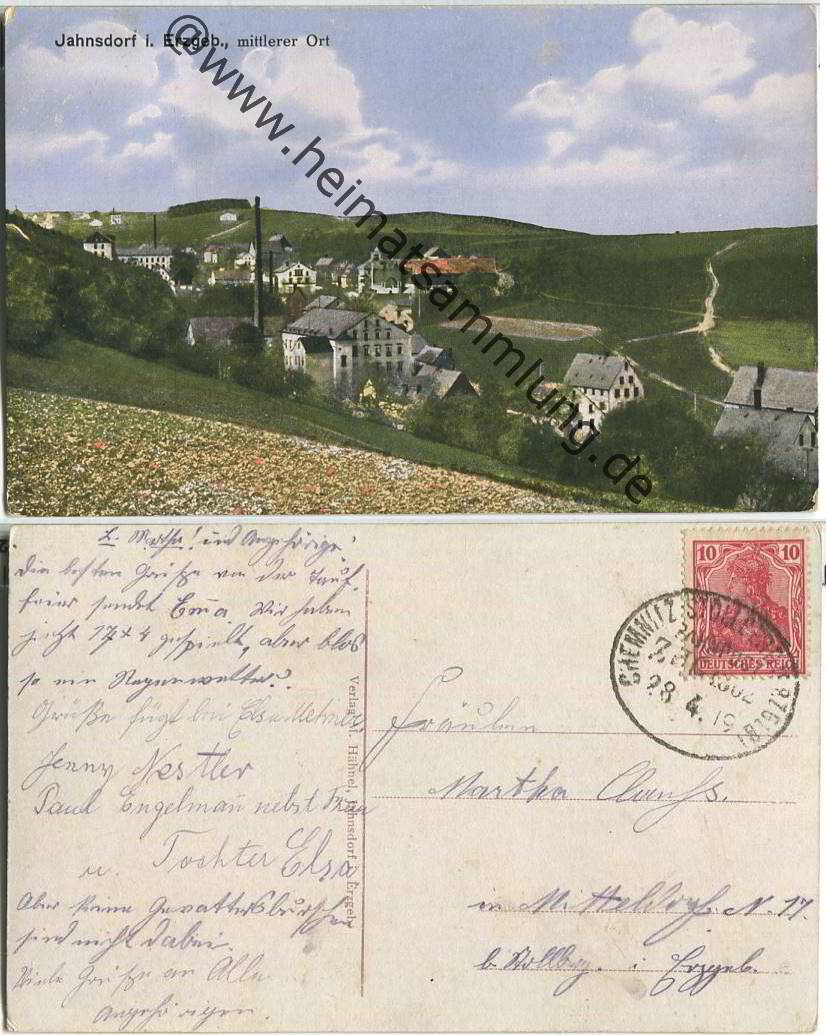 Jahnsdorf i. Erzgeb., mittlerer Ort
@www.heimatsammlung.de
L. Martha! und Angehörige!
Die besten Grüße von der Tauf-
feier sendet Emma. Wir haben
jetzt 17 + 4 gespielt, aber blos
so ein Regenwetter?
Grüße fügt bei Elsa
Jenny Nestler
Paul Engelmann nebst Frau
u. Tochter Elsa
Aber keine Gevattersburschen
sind nicht dabei.
Viele Grüße an Alle
Angehörigen.
Verlag: Hähnel, Jahnsdorf i. Erzgeb.
10 10
DEUTSCHES REICH
CHEMNITZ-STOLLBERG
BAHNPOST
ZUG 1882
28.4.19
Fräulein
Martha Clauss.
in Mitteldorf N. 17.
b. Stollberg. i. Erzgeb.